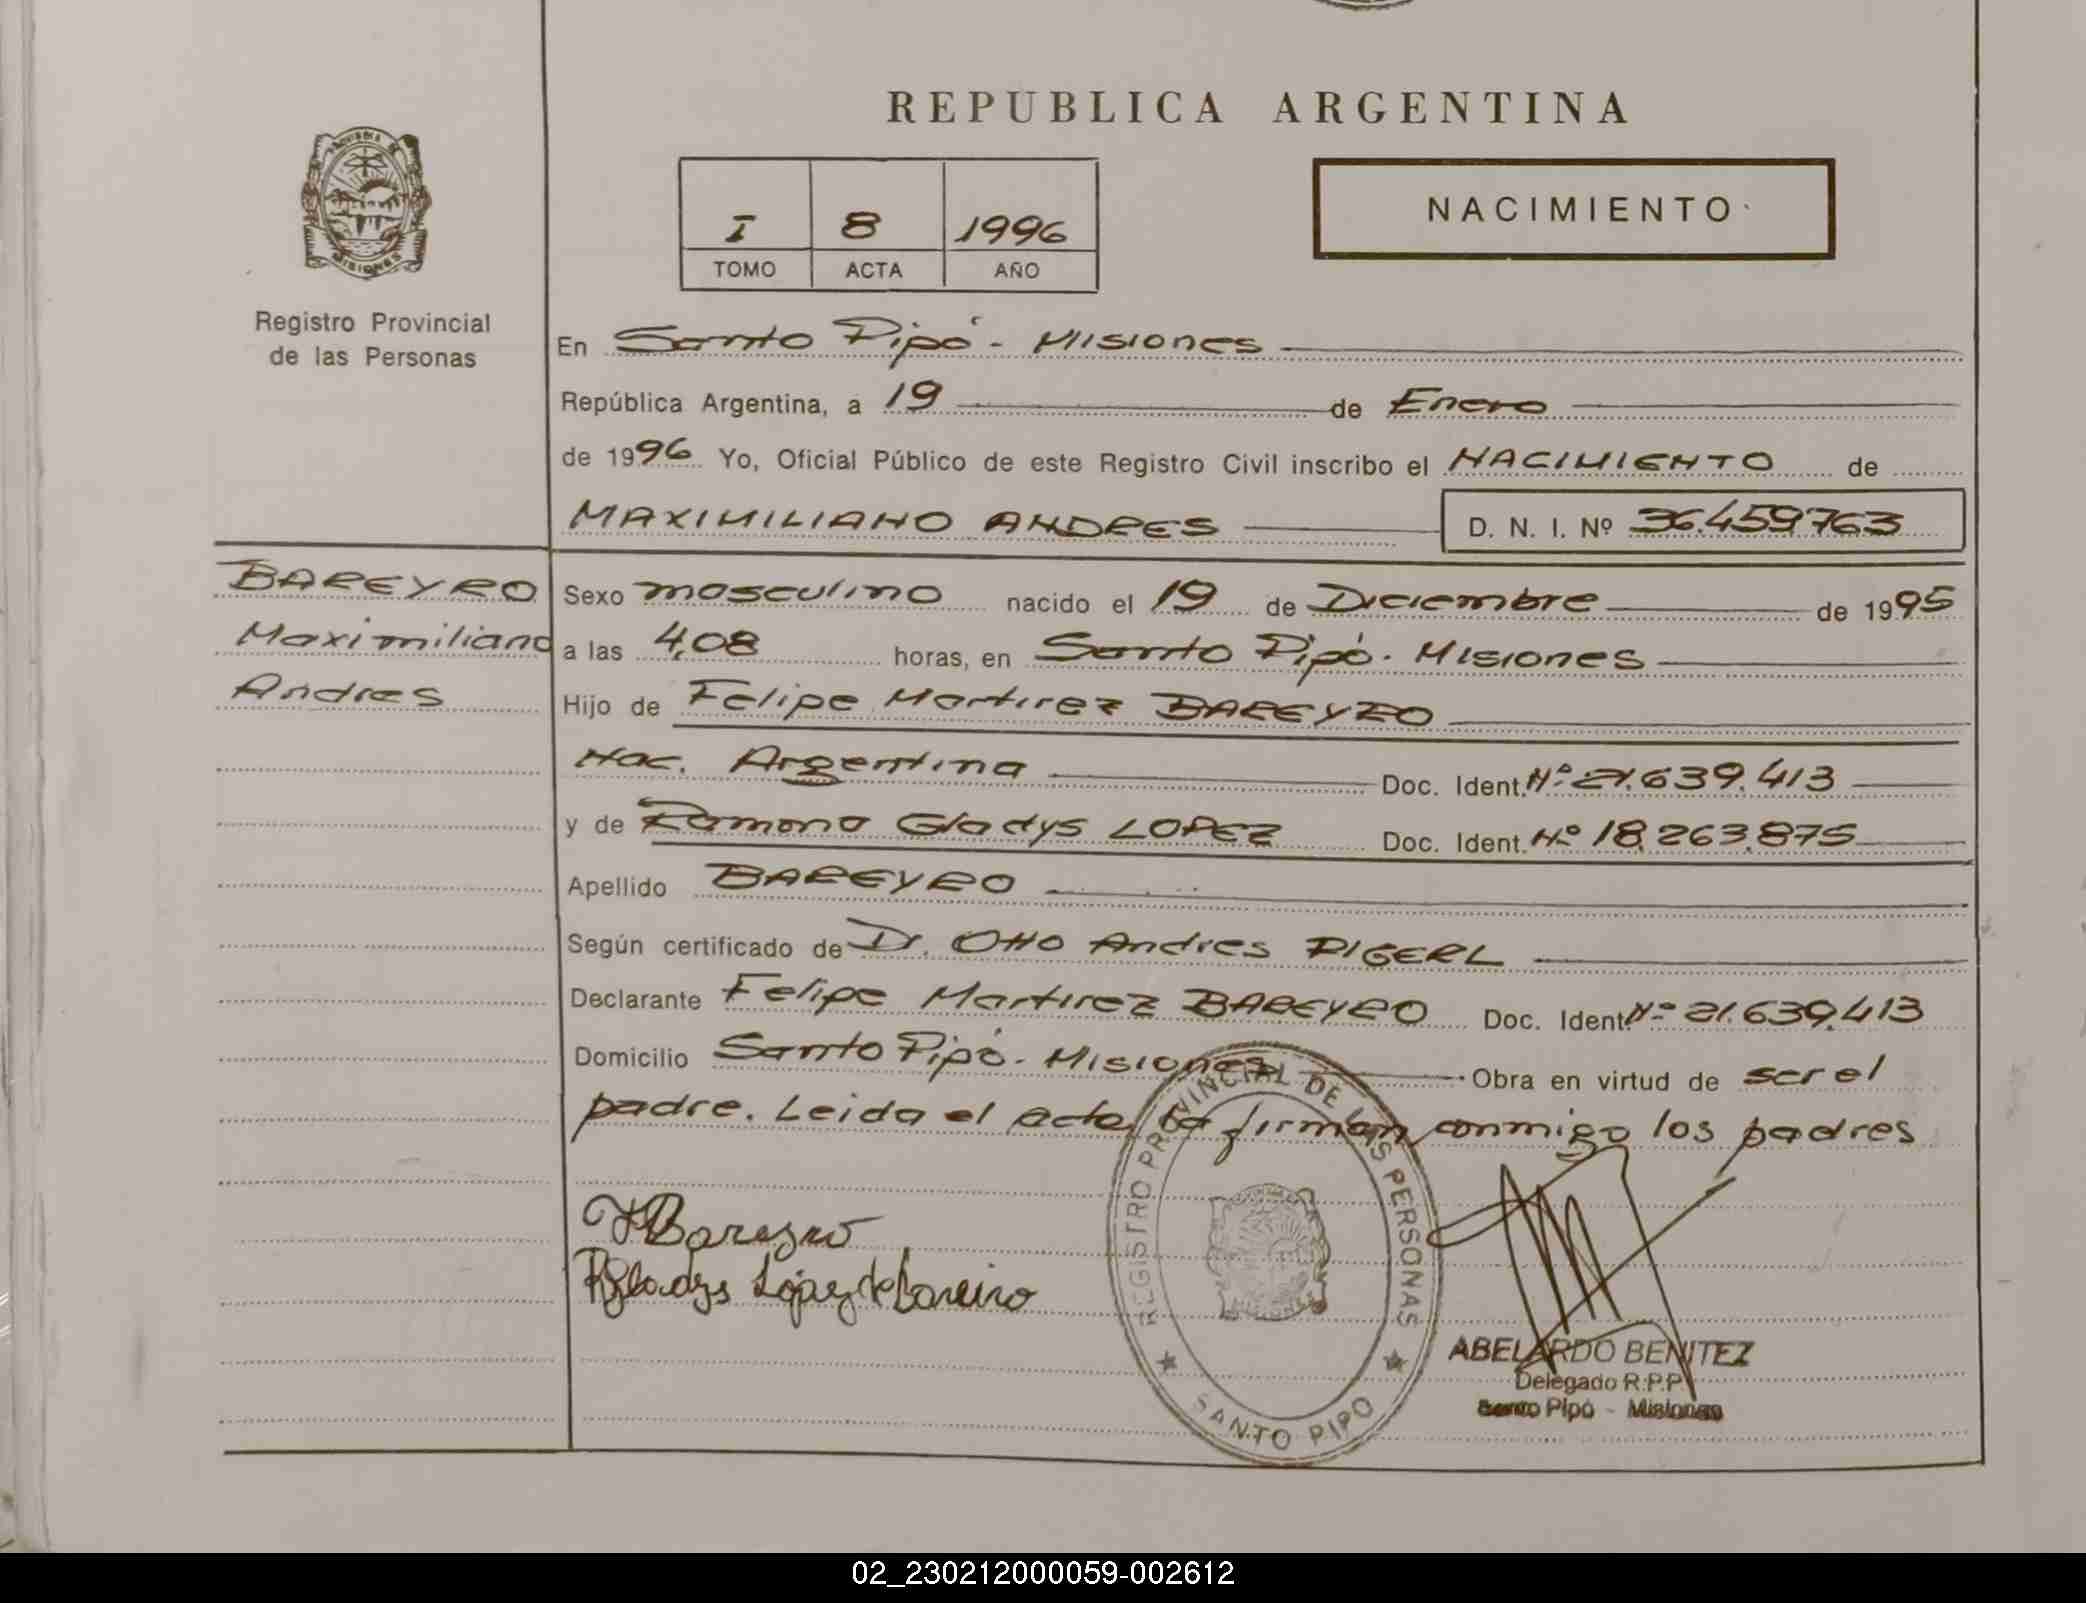 REPUBLICA ARGENTINA
PROVINCIA DE
MISIONES
Registro Provincial
de las Personas
I 8 1996
TOMO ACTA AÑO
NACIMIENTO
En Santo Pipó - Misiones
República Argentina, a 19 de Enero
de 1996 Yo, Oficial Público de este Registro Civil inscribo el NACIMIENTO de
MAXIMILIANO ANDRES D. N. I. Nº 36.459.763
BAREYRO
Maximiliano
Andres
Sexo masculino nacido el 19 de Diciembre de 1995
a las 4,08 horas, en Santo Pipó - Misiones
Hijo de Felipe Martirez BAREYRO
Nac. Argentina Doc. Ident. Nº 21.639.413
y de Ramona Gladys LOPEZ Doc. Ident. Nº 18.263.875
Apellido BAREYRO
Según certificado de Dr. Otto Andres PIGERL
Declarante Felipe Martirez BAREYRO Doc. Ident. Nº 21.639.413
Domicilio Santo Pipó - Misiones Obra en virtud de ser el
padre. Leida el acta, la firman conmigo los padres
FBareyro
RGladys López de Bareiro
REGISTRO PROVINCIAL DE LAS PERSONAS
SANTO PIPO
ABELARDO BENITEZ
Delegado R.P.P.
Santo Pipó - Misiones
02_230212000059-002612